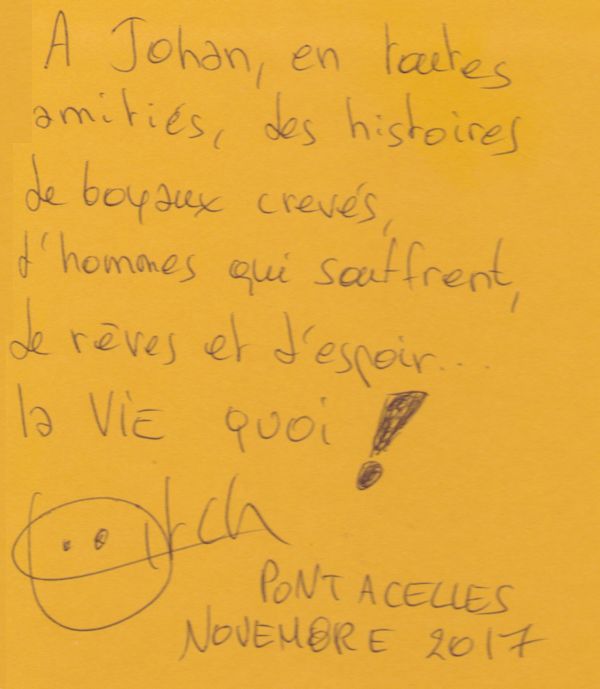 A Johan, en toutes
amitiés, des histoires
de boyaux crevés,
d'hommes qui souffrent,
de rêves et d'espoir...
la VIE QUOI !
PONT A CELLES
NOVEMBRE 2017